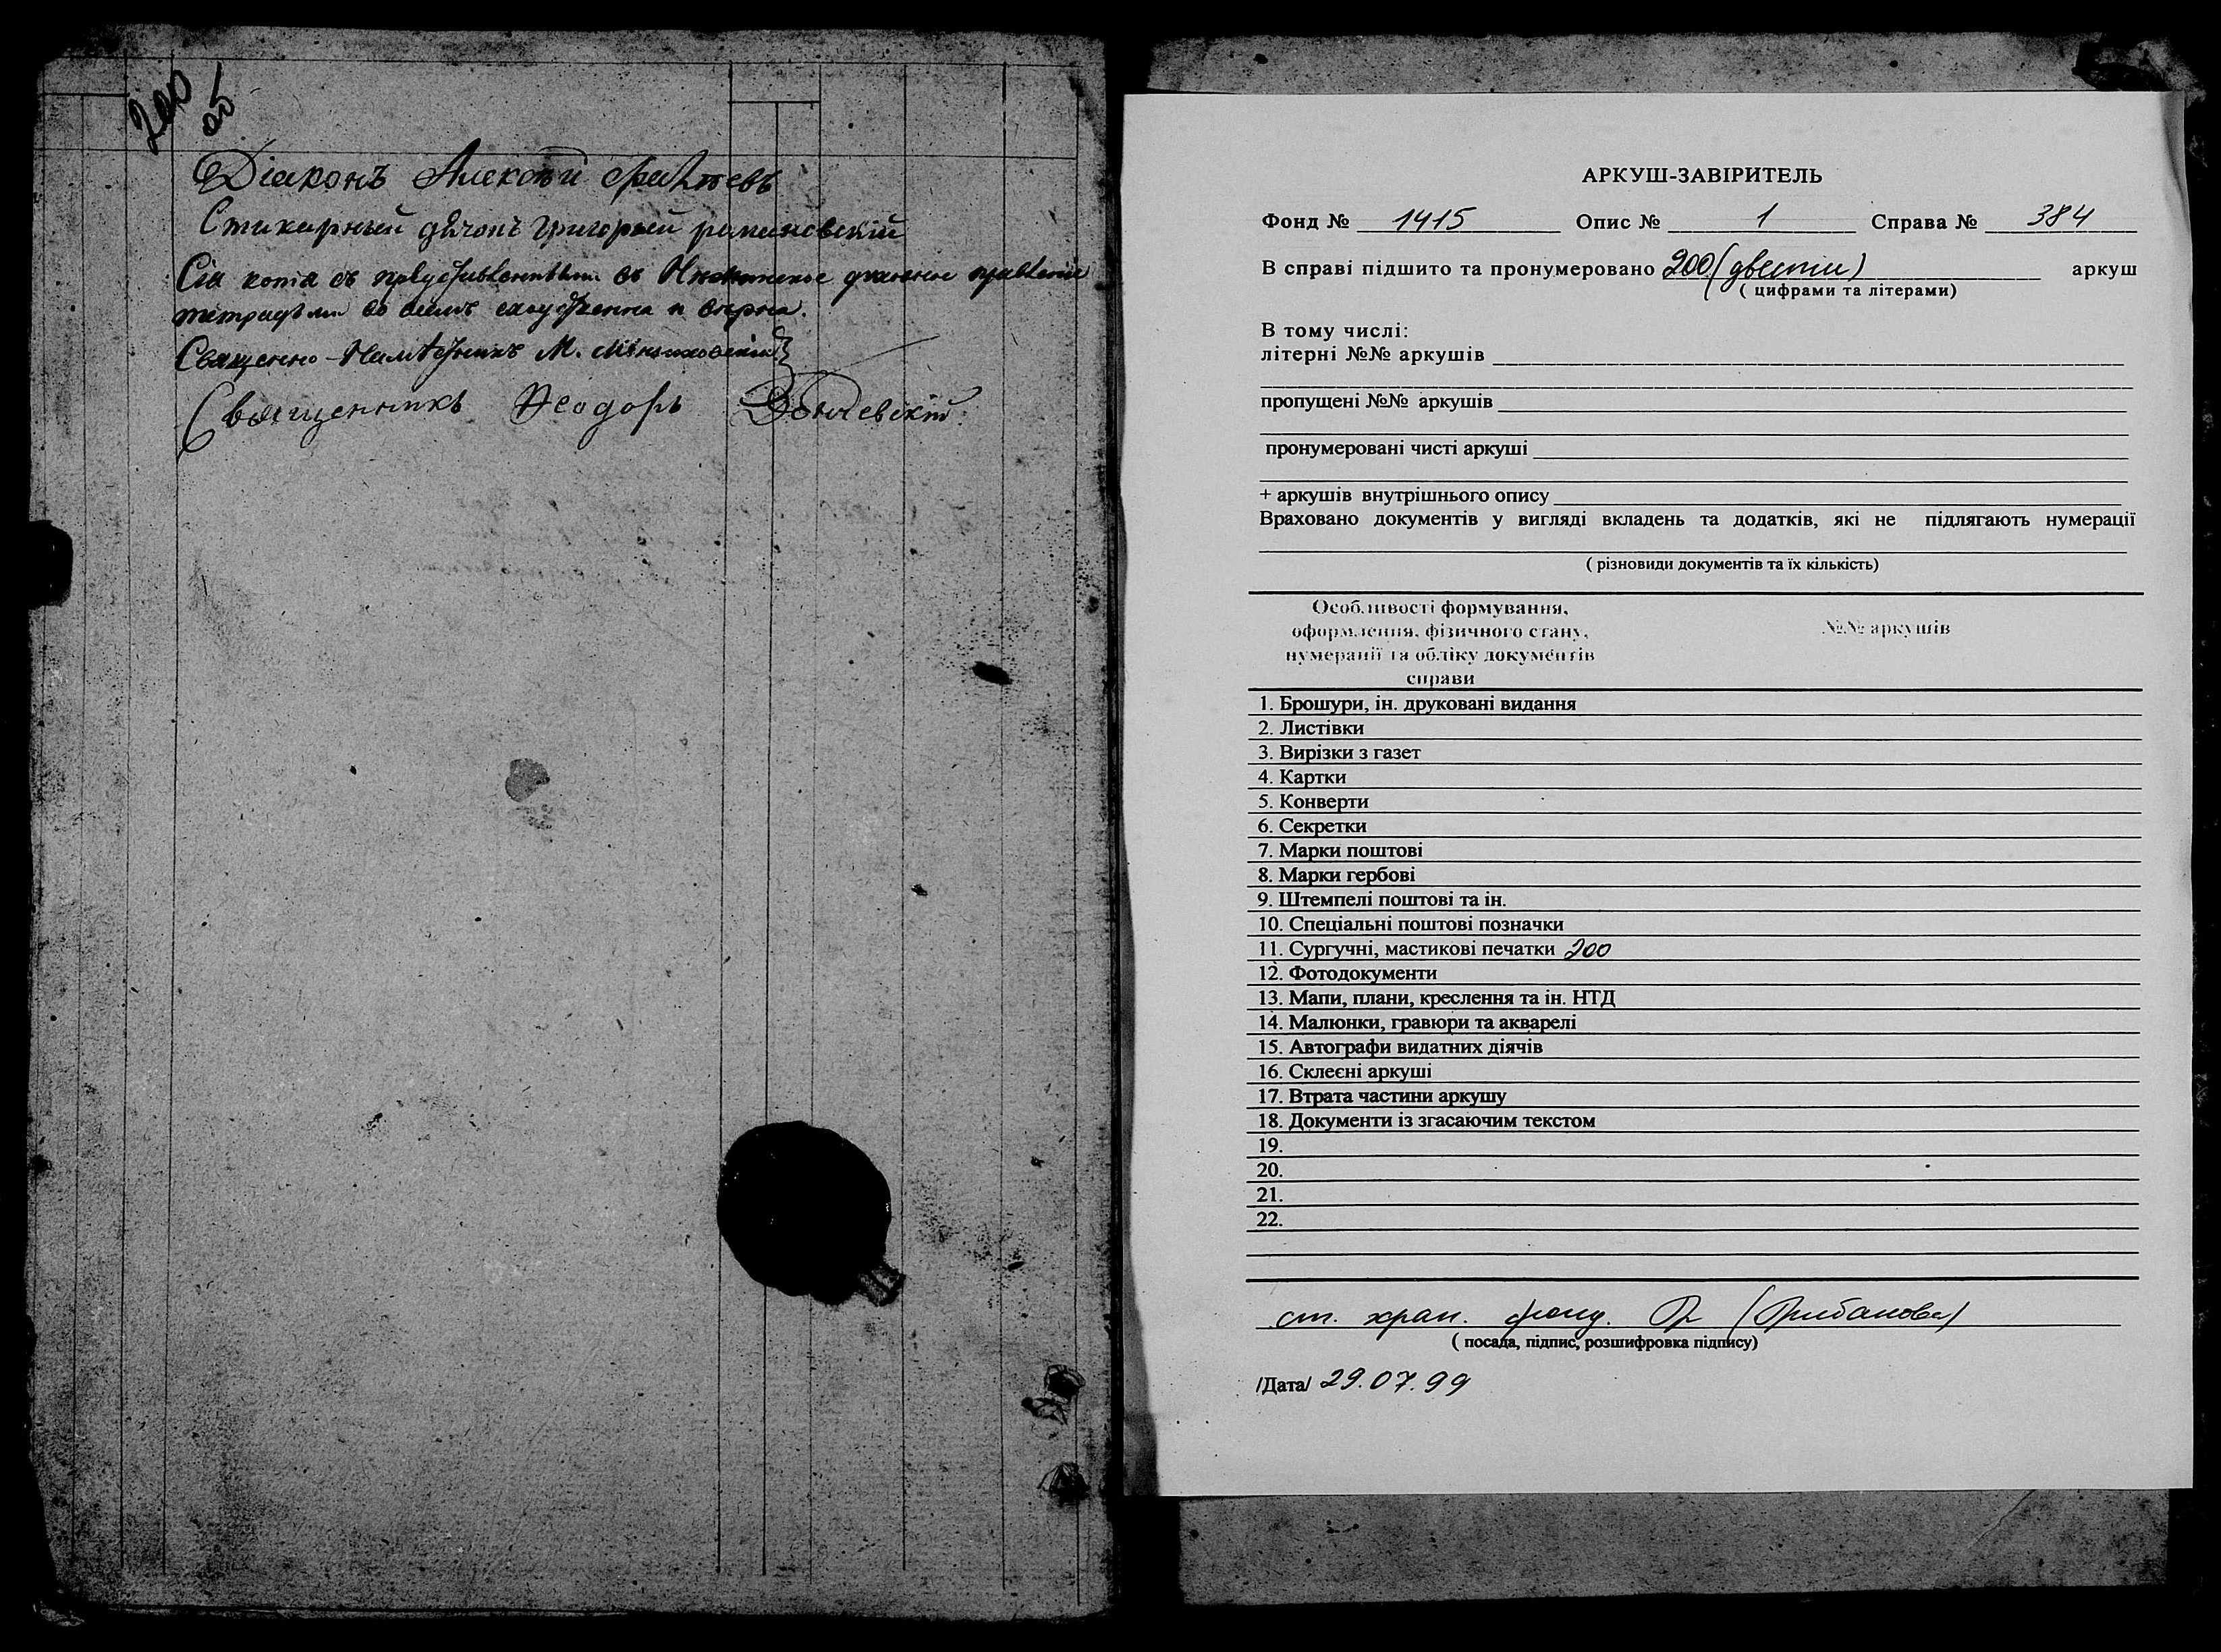 200
об
Діаконъ Алексѣй
Стихарный дячокъ Григорый романовскій
Сія копіа съ представленными въ Нѣжинское духовное правленіе
тетрадьми во всемъ сходственна и вѣрна.
Священно-Намѣстникъ М.
Священникъ Ѳеодоръ
АРКУШ-ЗАВІРИТЕЛЬ
Фонд № 1415 Опис № 1 Справа № 384
В справі підшито та пронумеровано 200 (двести) аркуш
( цифрами та літерами)
В тому числі:
літерні №№ аркушів
пропущені №№ аркушів
пронумеровані чисті аркуші
+ аркушів внутрішнього опису
Враховано документів у вигляді вкладень та додатків, які не підлягають нумерації
( різновиди документів та їх кількість)
Особливості формування, оформлення, фізичного стану, нумерації та обліку документів справи
№№ аркушів
1. Брошури, ін. друковані видання
2. Листівки
3. Вирізки з газет
4. Картки
5. Конверти
6. Секретки
7. Марки поштові
8. Марки гербові
9. Штемпелі поштові та ін.
10. Спеціальні поштові позначки
11. Сургучні, мастикові печатки 200
12. Фотодокументи
13. Мапи, плани, креслення та ін. НТД
14. Малюнки, гравюри та акварелі
15. Автографи видатних діячів
16. Склеєні аркуші
17. Втрата частини аркушу
18. Документи із згасаючим текстом
19.
20.
21.
22.
ст. хран. фонд.
( посада, підпис, розшифровка підпису)
/Дата/ 29.07.99